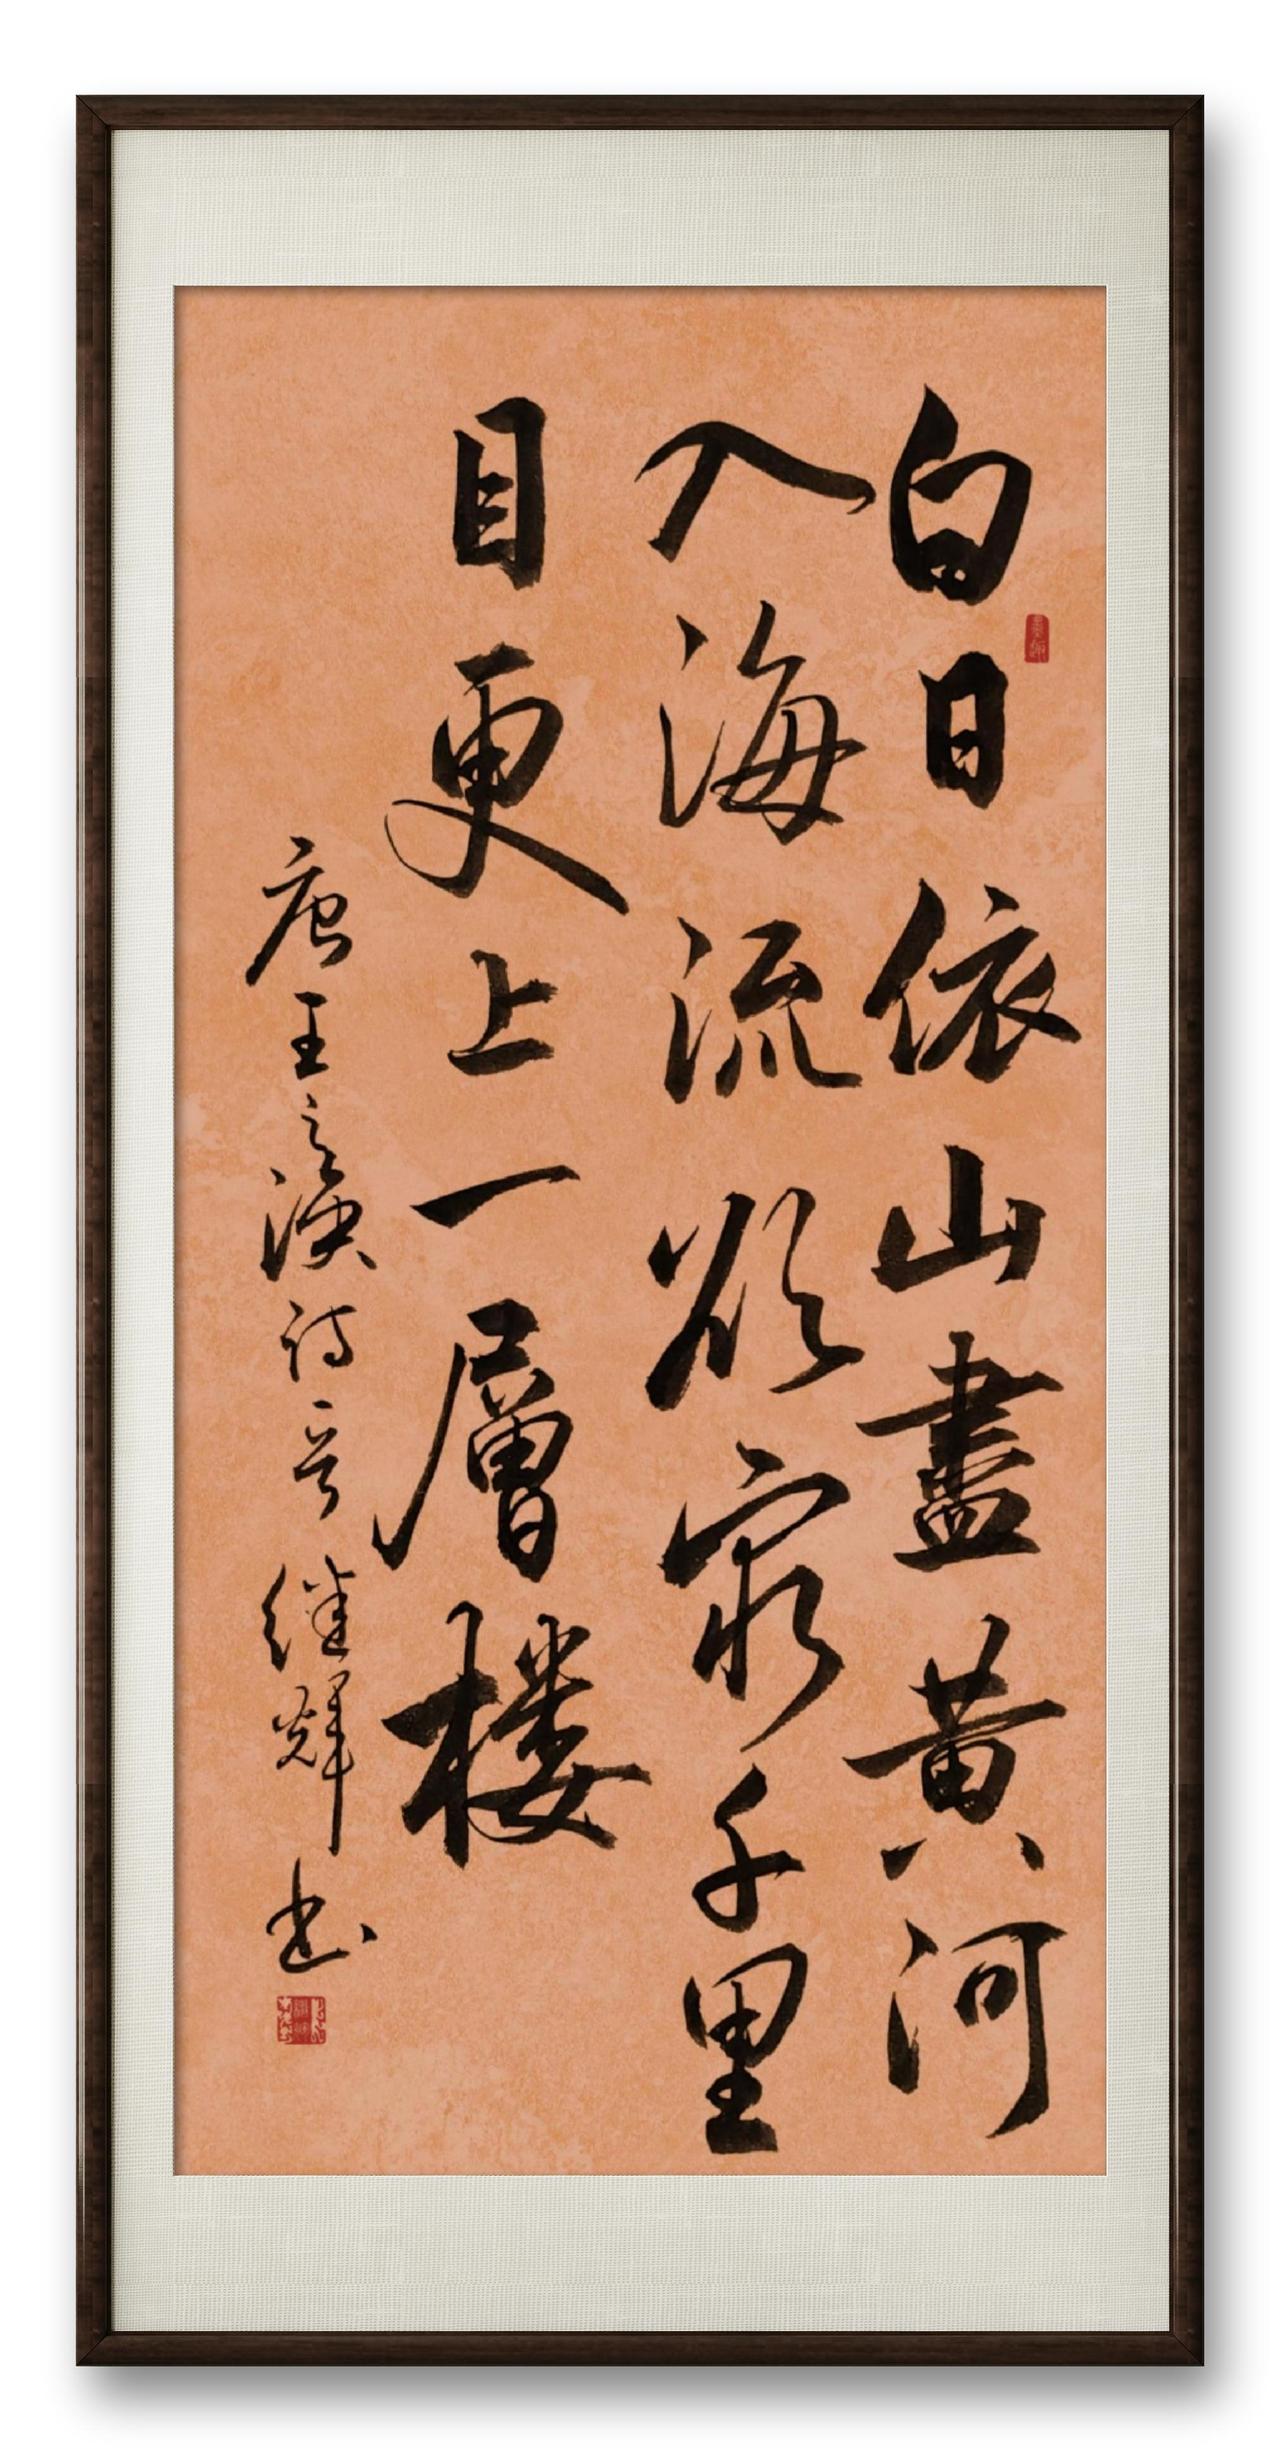 白日依山盡黄河
入海流欲窮千里
目更上一層楼
唐王之涣诗一首 继辉书